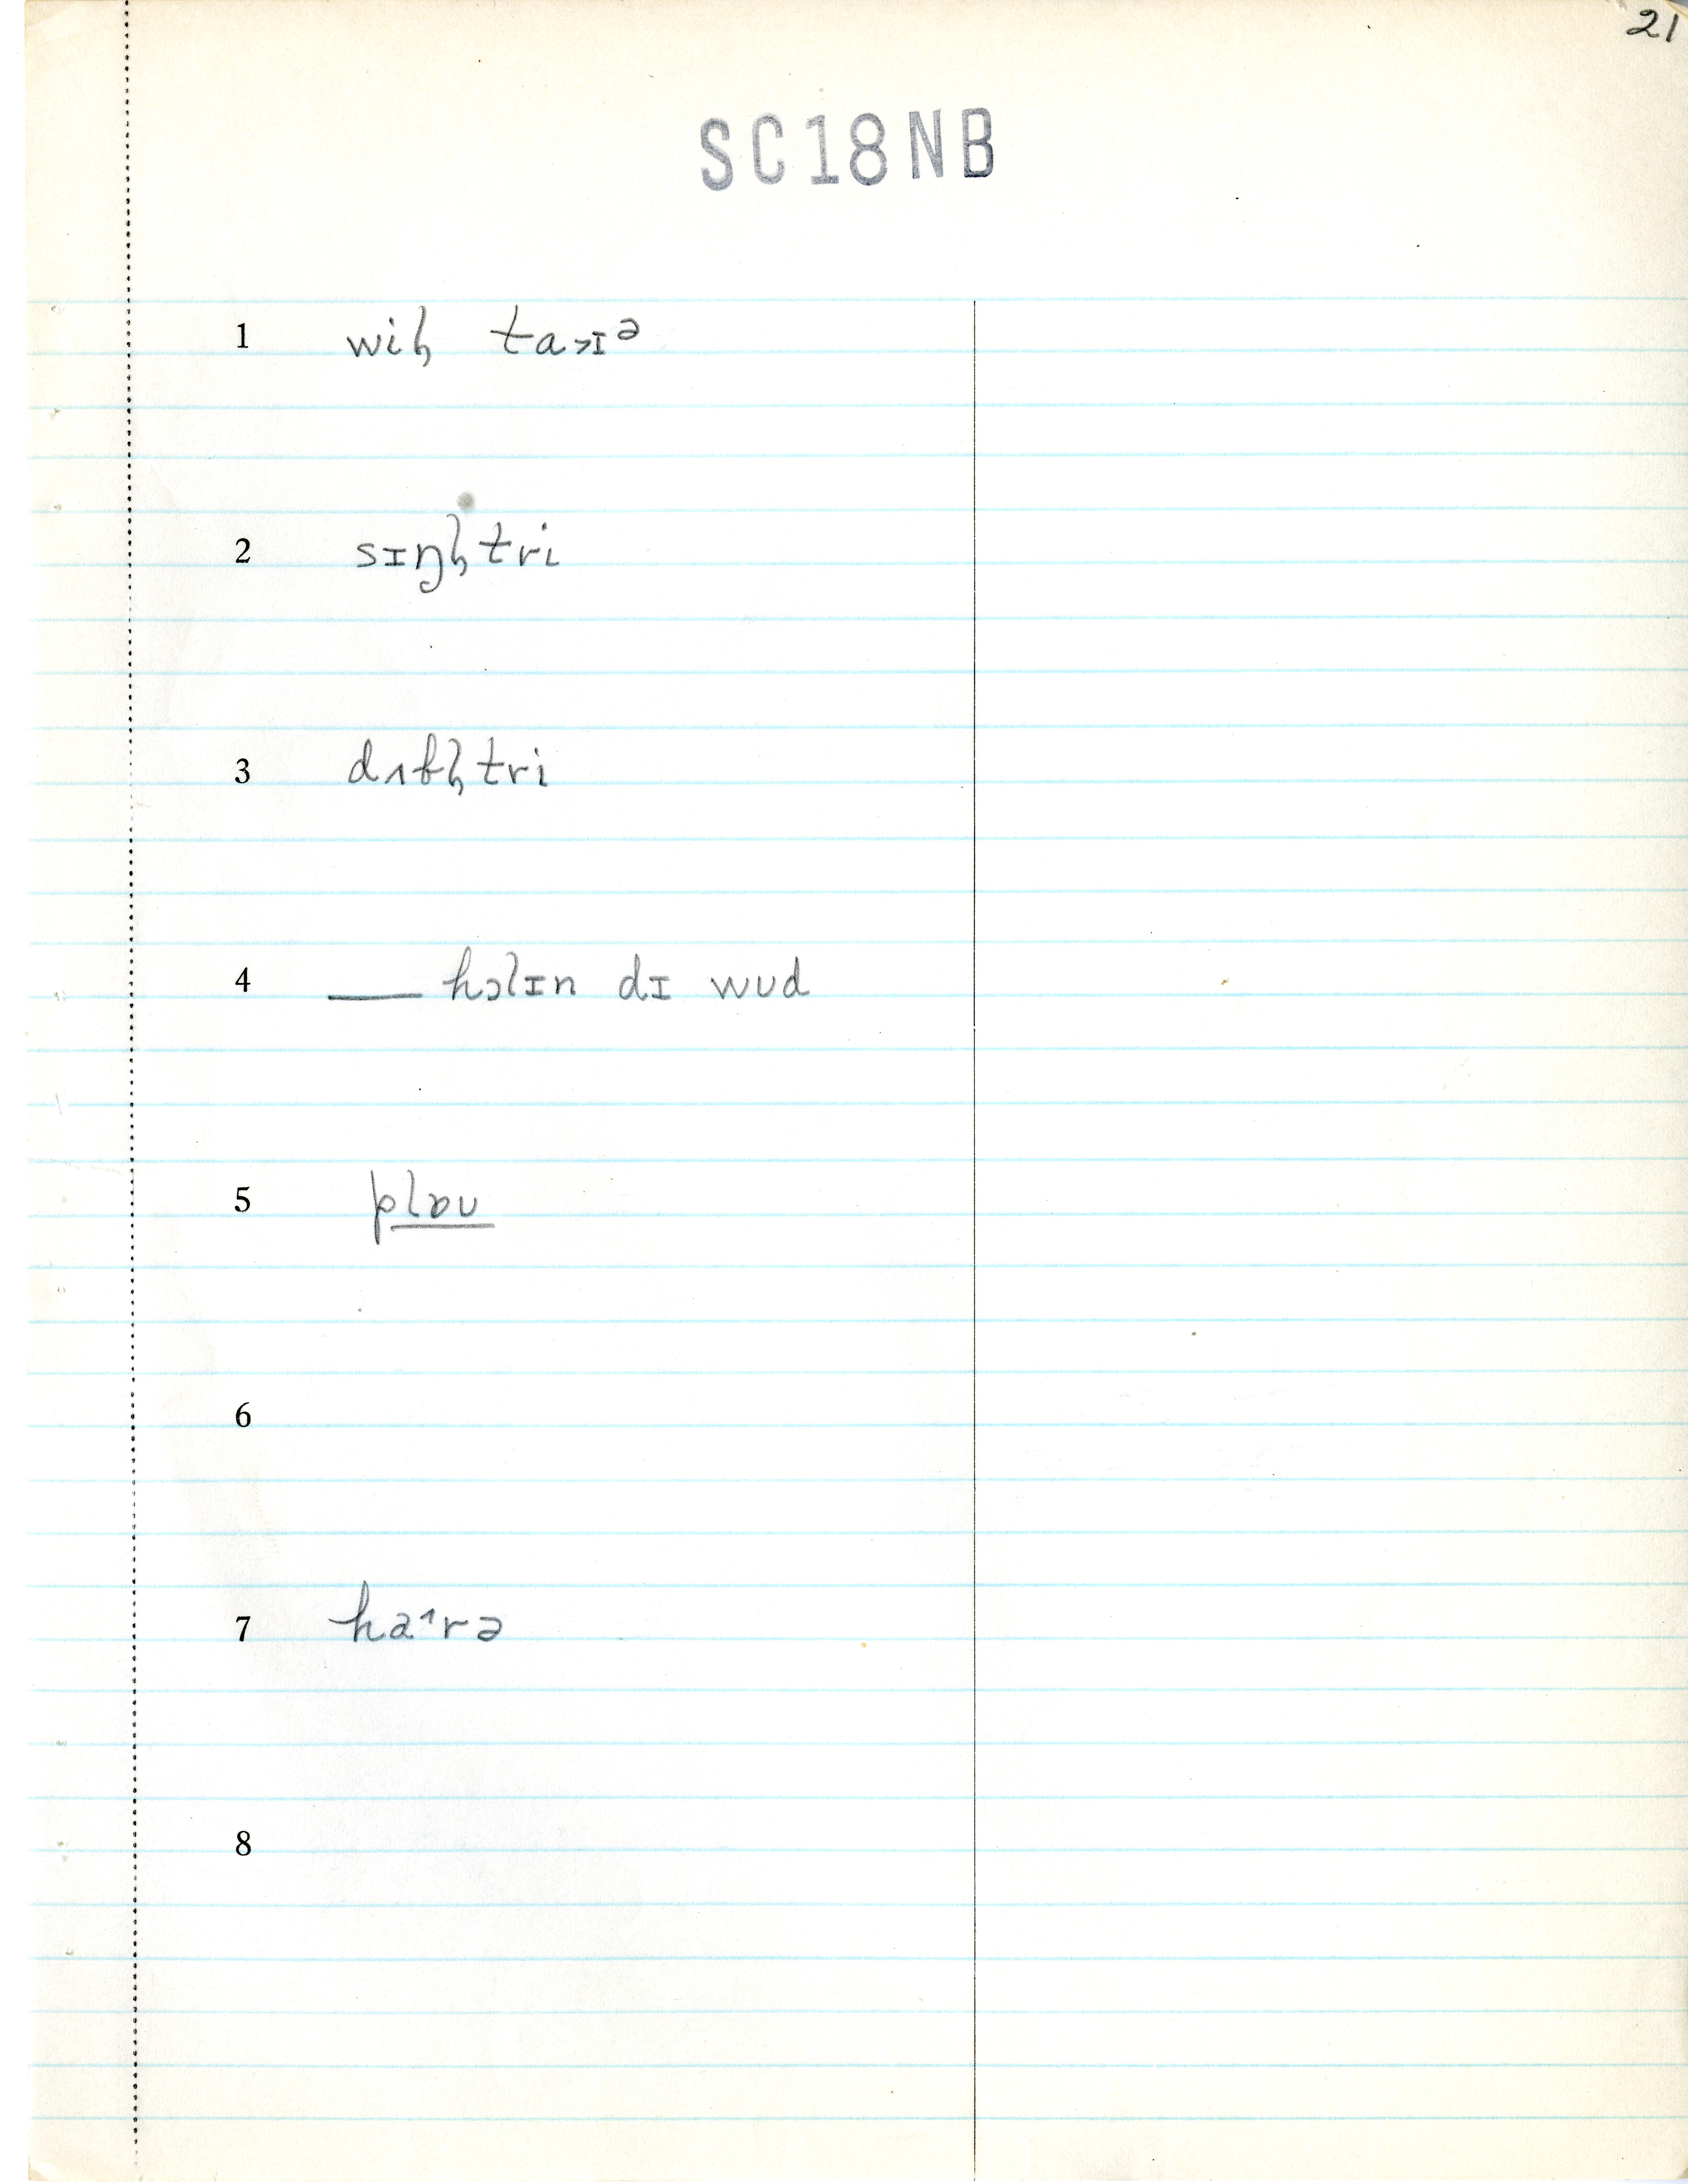 21
SC18NB
1 wiɫ̥ ta˃ɪᵊ
2 sɪŋɫ̥tri
3 dʌbɫ̥tri
4 ___ hɔlɪn dɪ wud
5 plɒu
6
7 ha˄rə
8